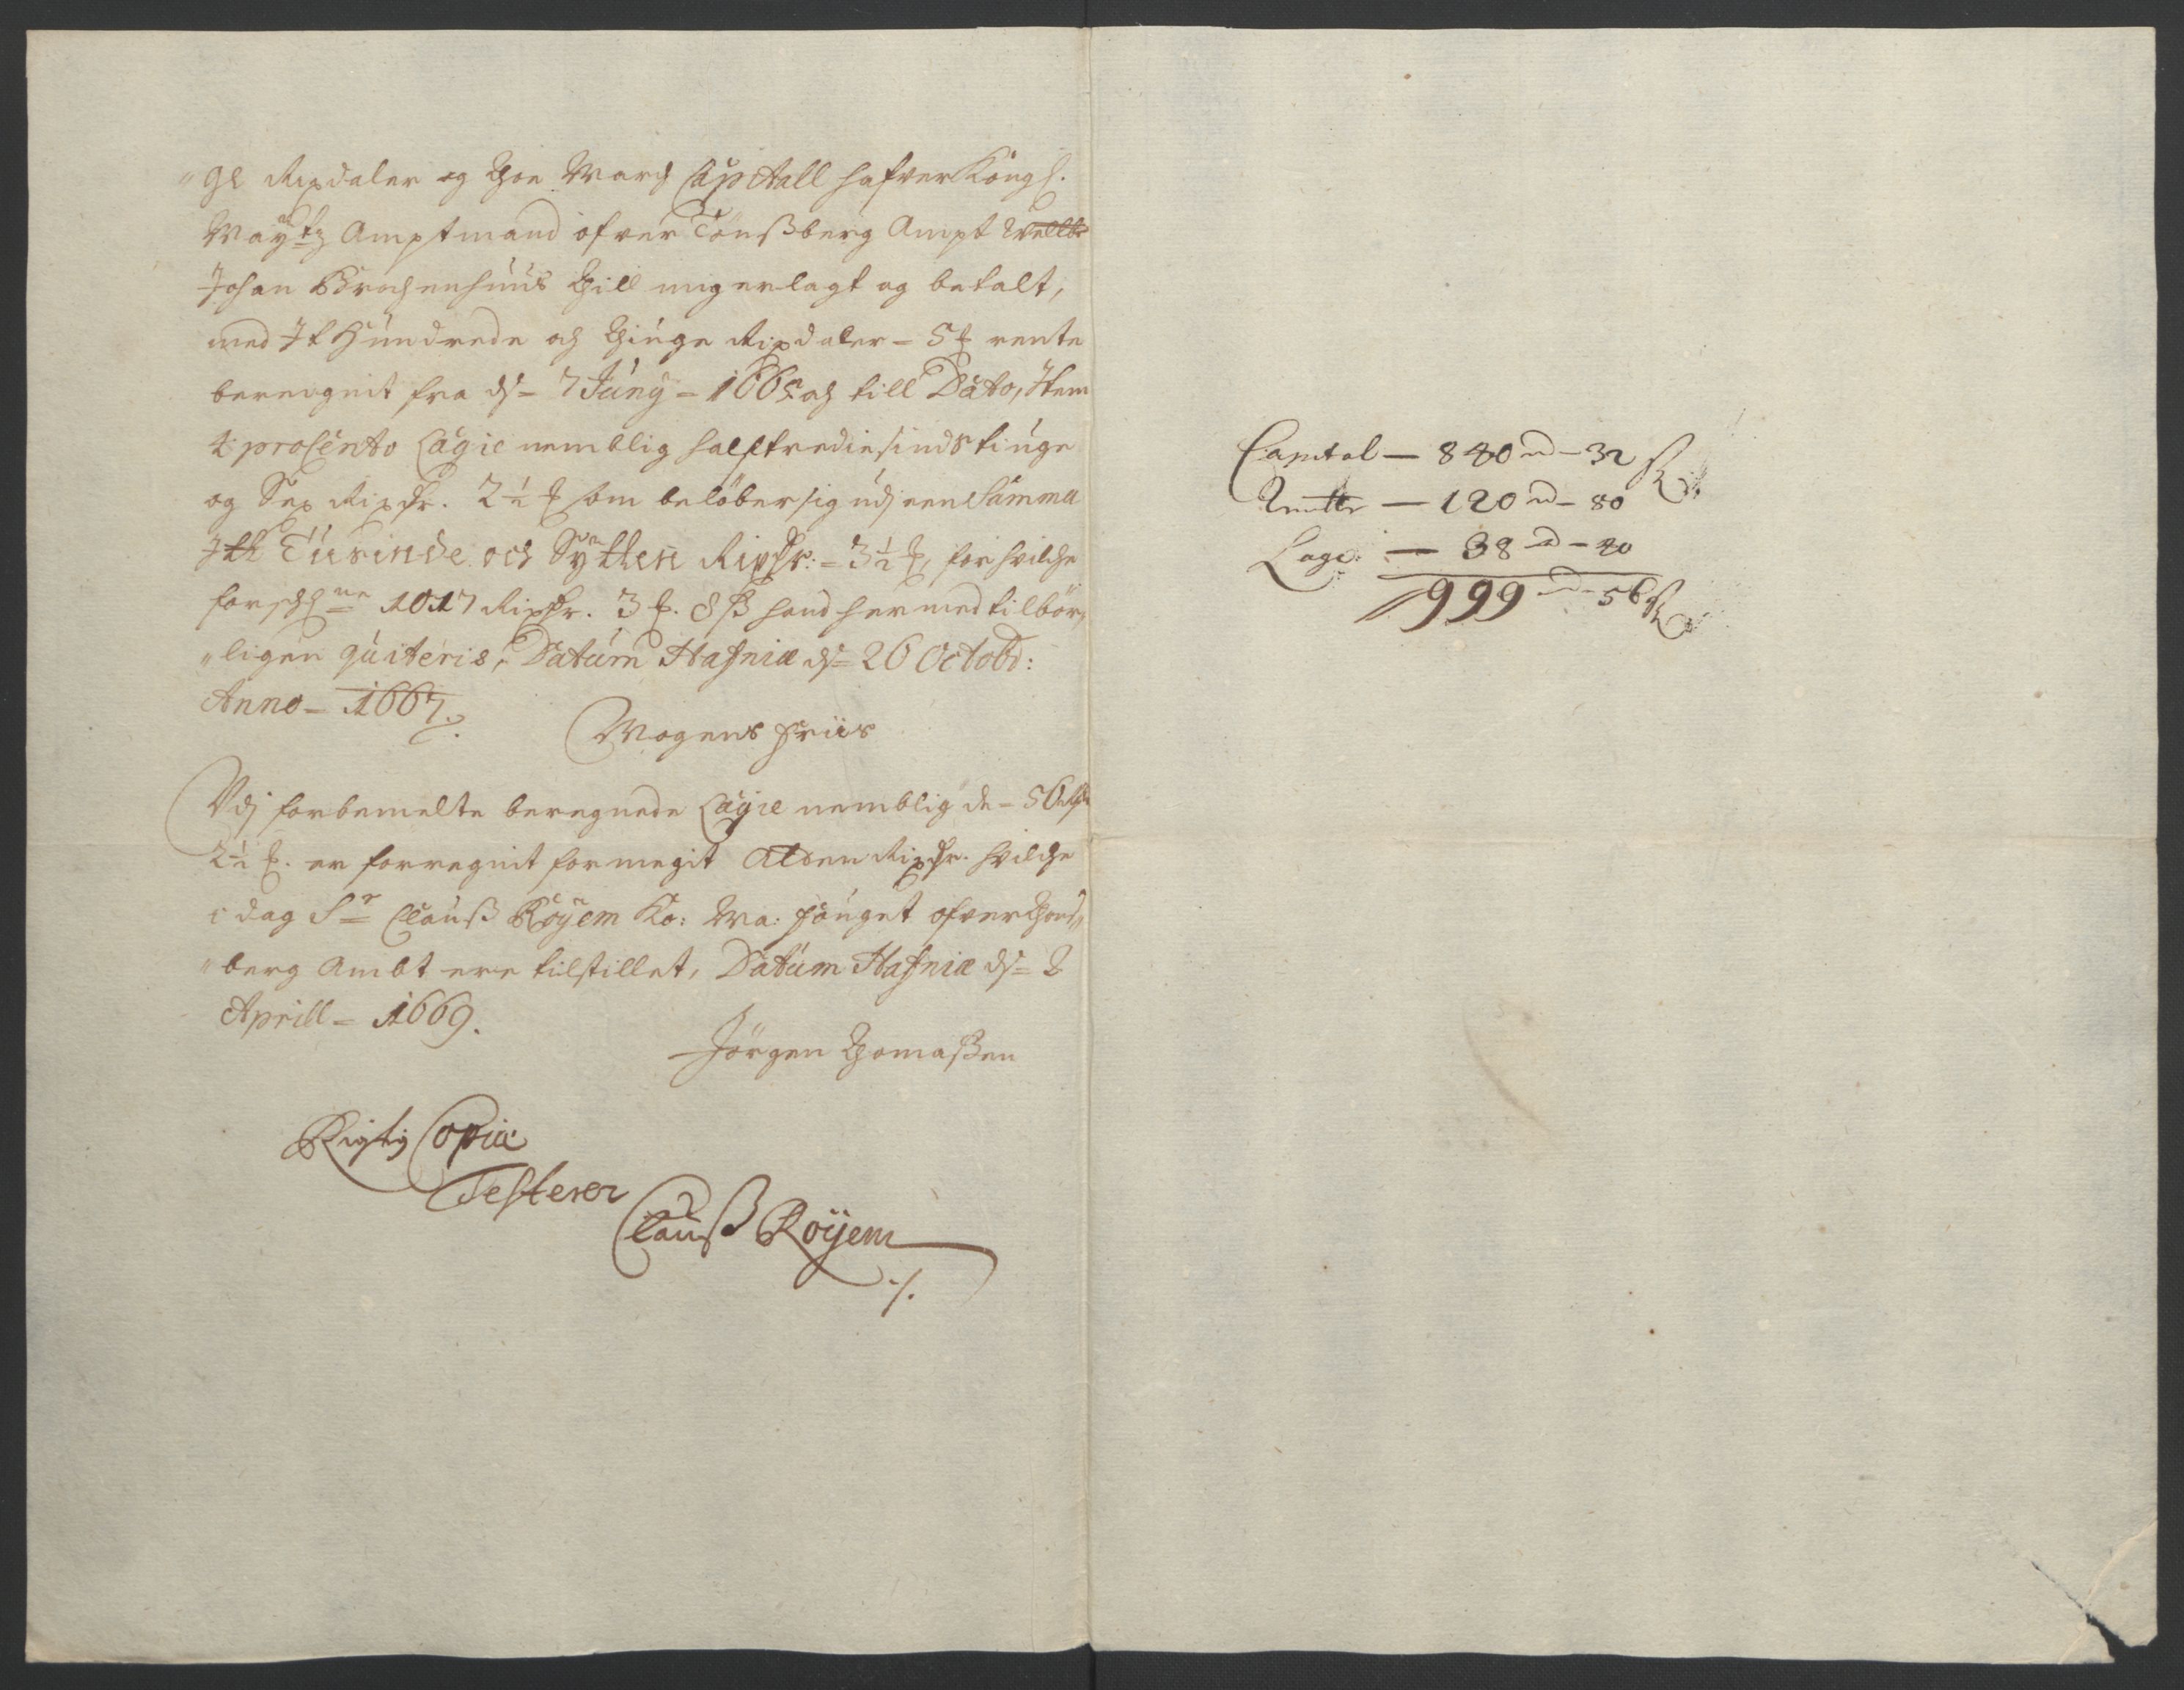 "ge Rixdaler og Thoe March Capitall hafver Kongl.
Maytz Amptmand ofver Tønßberg Ampt Welb:
Johan Brochenhuus till mig erlagt og betalt,
med It Hundrede och Tiuge Rixdaler - 5 ₰ rente
beregnit fra ds- 7 Juny - 1665 och till Dato, Item
4 procento Lagie nemblig halftrediesinds tiuge
og Sex Rixdr. 2½ ₰ som beløber sig udj een Summa
Itt Tusinde och Sytten Rixdr: - 3½ ₰, for hvilche
forschne 1017 Rixdr. 3 ₰. 8 ß hand hermed tilbør,
"ligen quiteris, Datum Hafniæ ds= 26 Octobr:
Anno - 1667.
Mogens Friis
Udj forbemelte beregnede Lagie nemblig de - 56 rdr
2½ ₰. er forregnit formegit Atten Rixdr. hvilche
i dag Sr Clauß Røyem Ko: Ma: Fouget ofver Tøns,,
"berg Ambt ere tilstillet, Datum Hafniæ ds= 2
Aprill - 1669.
Jørgen Thomaßen
Rigtig Copia
Testerer
Clauß Røyem
./.
Capital — 840 rd - 32 ß
Rentte — 120 rd - 80
Lage: — 38 rd - 40
999 rd - 56 ß